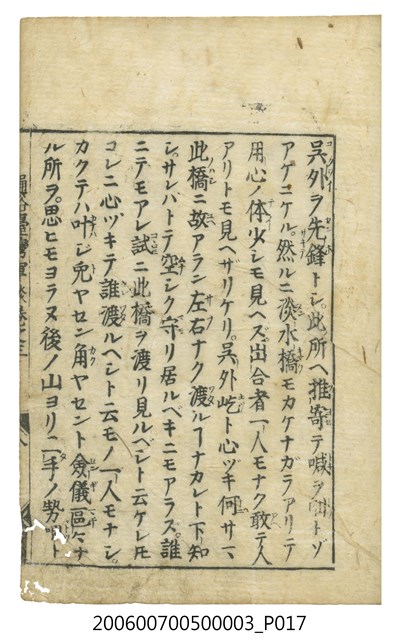 呉外ヲ先鋒トシ此所ヘ推寄テ喊ヲ
アゲニケル。然ルニ淡水橋モカケナガラアリテ
用心ノ体少シモ見ヘズ。出合者一人モナク敢テ人
アリトモ見ヘザリケリ。呉外屹ト心ヅキ何サマ
此橋ニ故アラン左右ナク渡ルヿナカレト下知
シ。サレバトテ空シク守リ居ルベキニモアラズ。誰
ニテモアレ試ニ此橋ヲ渡リ見ルベシト云ケレ𪜈
コレニ心ヅキテ誰渡ルベシト云モノ一人モナシ。
カクテハ叶ジ免ヤセン角ヤセント僉儀區々ナ
ル所ヲ。思ヒモヨラヌ後ノ山ヨリ二手ノ勢
臺灣軍談巻之三
200600700500003_P017